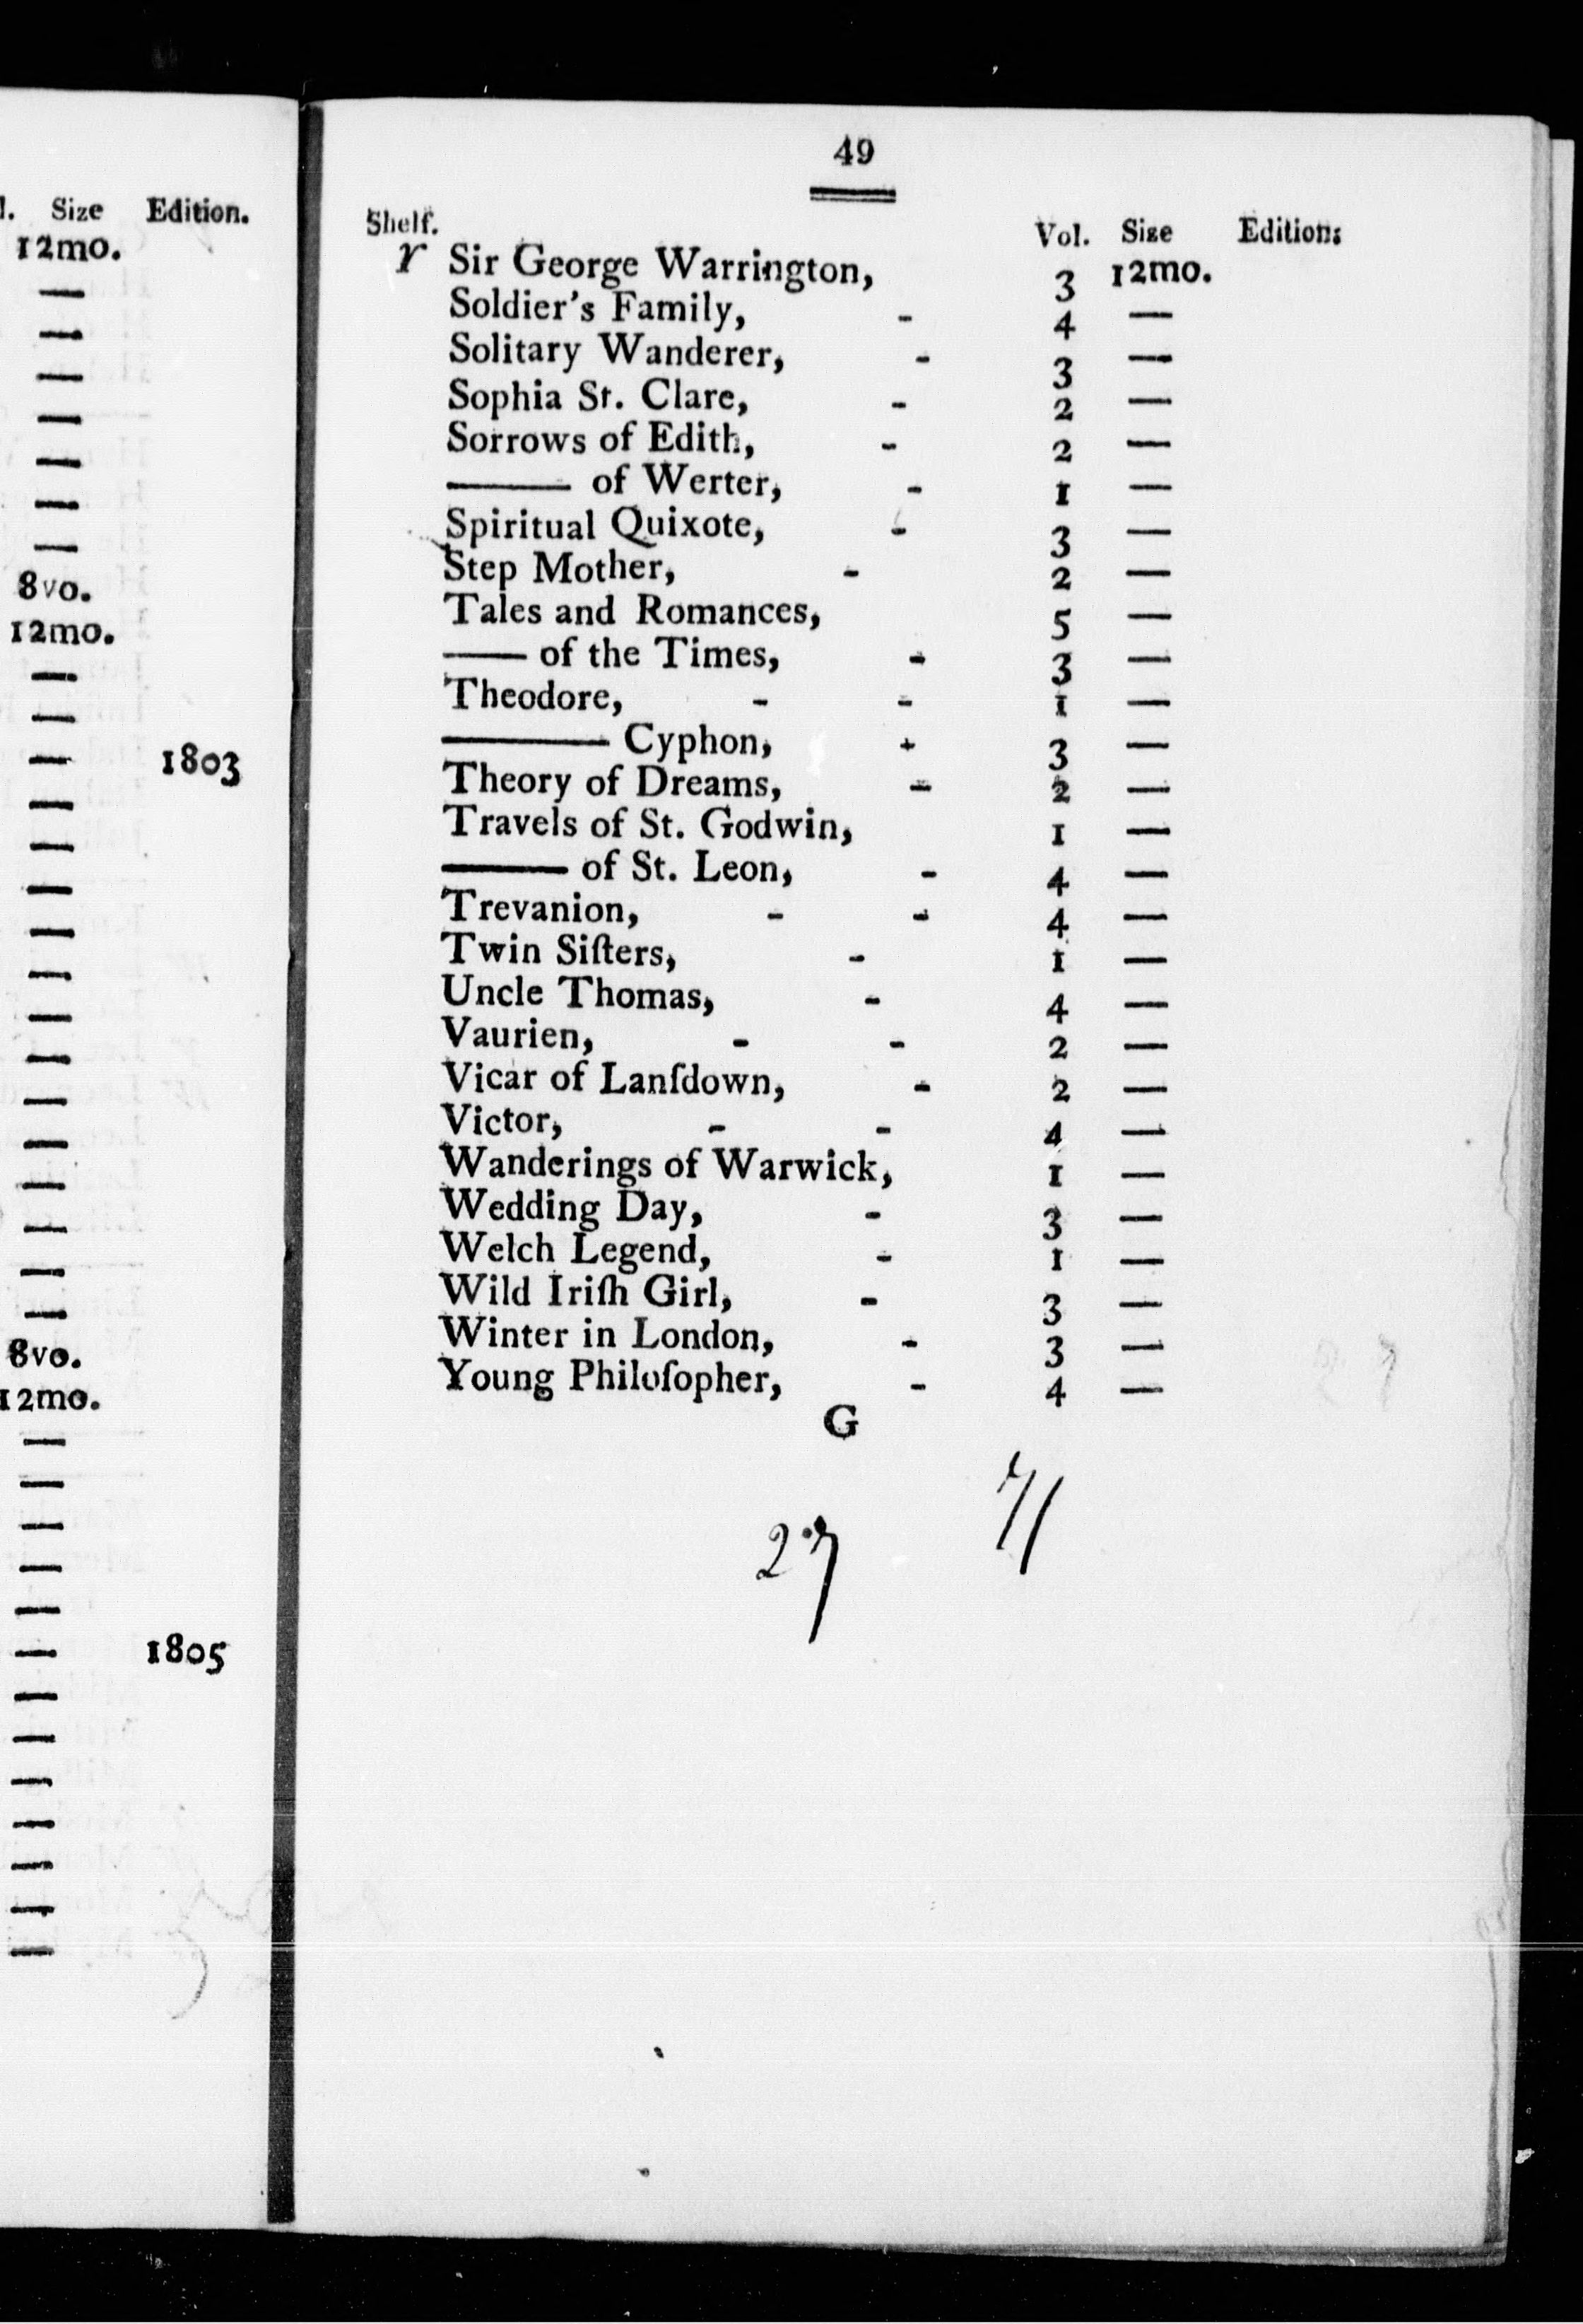 l. Size Edition.
12mo.
—
—
—
—
—
—
—
8vo.
12mo.
—
—
— 1803
—
—
—
—
—
—
—
—
—
—
—
—
—
8vo.
12mo.
—
—
—
—
—
— 1805
—
—
—
—
—
—
—
49
Shelf. Vol. Size Edition:
r Sir George Warrington, 3 12mo.
Soldier's Family, - 4 —
Solitary Wanderer, - 3 —
Sophia St. Clare, - 2 —
Sorrows of Edith, - 2 —
—— of Werter, - 1 —
Spiritual Quixote, - 3 —
Step Mother, - 2 —
Tales and Romances, 5 —
—— of the Times, - 3 —
Theodore, - - 1 —
—— Cyphon, - 3 —
Theory of Dreams, - 2 —
Travels of St. Godwin, 1 —
—— of St. Leon, - 4 —
Trevanion, - - 4 —
Twin Siſters, - 1 —
Uncle Thomas, - 4 —
Vaurien, - - 2 —
Vicar of Lanſdown, - 2 —
Victor, - - 4 —
Wanderings of Warwick, 1 —
Wedding Day, - 3 —
Welch Legend, - 1 —
Wild Iriſh Girl, - 3 —
Winter in London, - 3 —
Young Philoſopher, - 4 —
G
27 71